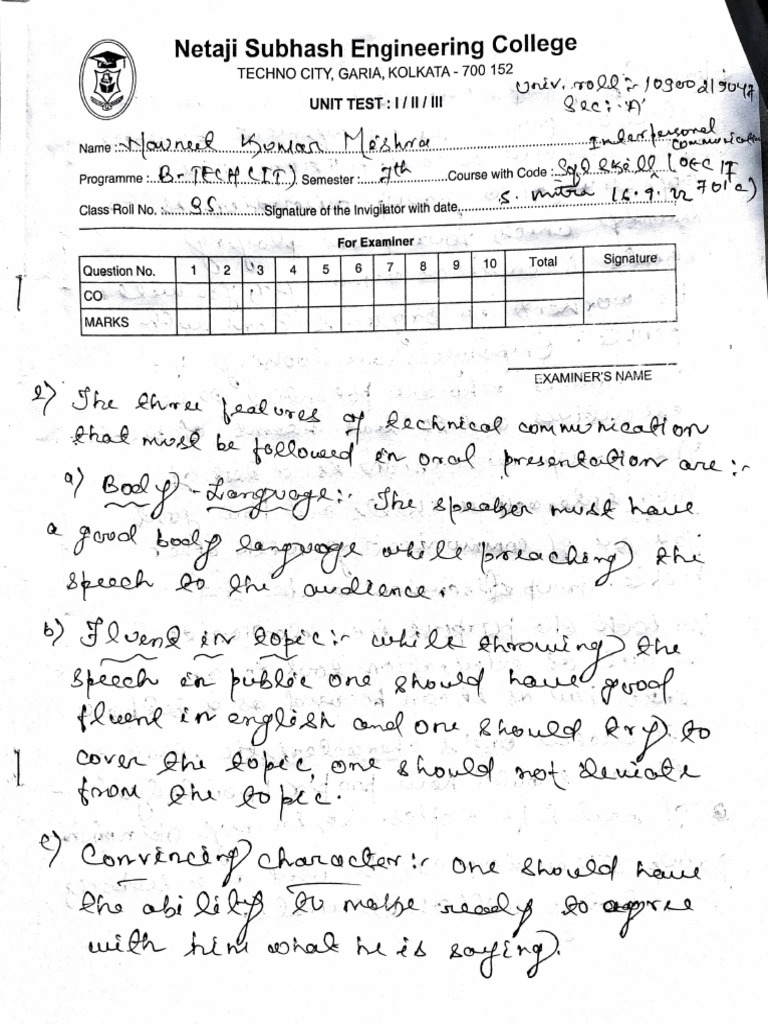 Netaji Subhash Engineering College
TECHNO CITY, GARIA, KOLKATA - 700 152
Univ. roll :- 10900219047
UNIT TEST : I / II / III
Sec :- 'A'
Name : Navneet Kumar Mishra
Interpersonal communication
Programme : B-TECH (IT) Semester : 7th Course with Code : Skill (OEC IT 701C)
Class Roll No. : 95 Signature of the Invigilator with date S. Mitra 16.9.22
For Examiner
Question No. 1 2 3 4 5 6 7 8 9 10 Total Signature
CO
MARKS
EXAMINER'S NAME
2) The three features of technical communication
that must be followed in oral presentation are :-
a) Body - Language :- The speaker must have
a good body language while preaching the
speech to the audience.
b) Fluent in topic :- while throwing the
speech in public one should have good
fluent in english and one should try to
cover the topic, one should not deviate
from the topic.
c) Convincing character :- one should have
the ability to make ready to agree
with him what he is saying.